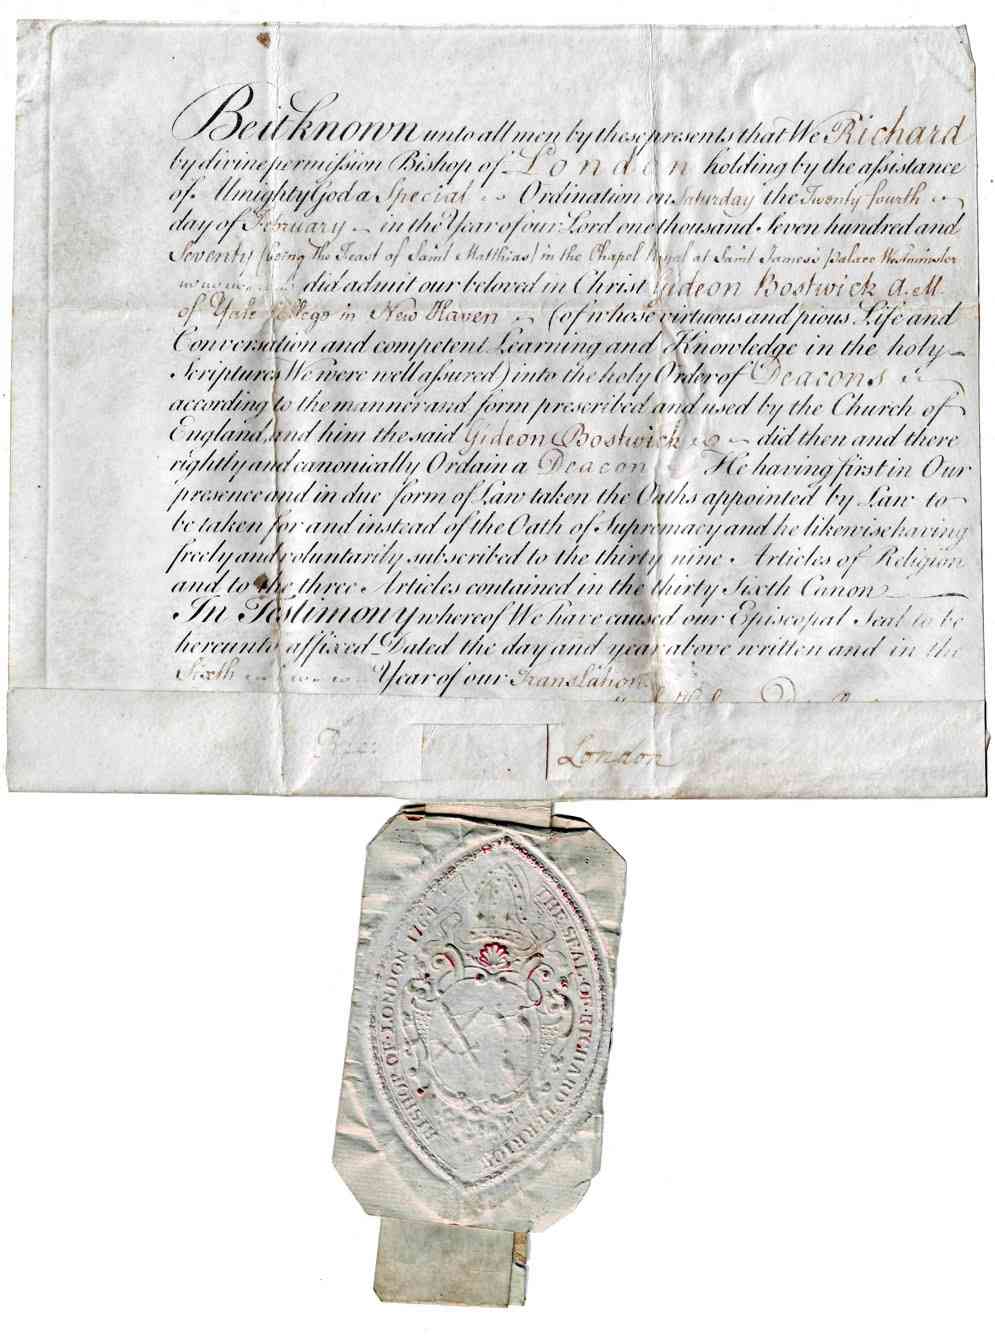 Be it known unto all men by these presents that We Richard
by divine permission Bishop of London holding by the assistance
of Almighty God a Special Ordination on Saturday the Twenty fourth
day of February in the Year of our Lord one thousand Seven hundred and
Seventy (being the Feast of Saint Matthias) in the Chapel Royal at Saint James's Palace Westminster
did admit our beloved in Christ Gideon Bostwick A.M.
of Yale College in New Haven (of whose virtuous and pious Life and
Conversation and competent Learning and Knowledge in the holy
Scriptures We were well assured) into the holy Order of Deacons
according to the manner and form prescribed and used by the Church of
England, and him the said Gideon Bostwick did then and there
rightly and canonically Ordain a Deacon He having first in Our
presence and in due form of Law taken the Oaths appointed by Law to
be taken for and instead of the Oath of Supremacy and he likewise having
freely and voluntarily subscribed to the thirty nine Articles of Religion
and to the three Articles contained in the thirty Sixth Canon
In Testimony whereof We have caused our Episcopal Seal to be
hereunto affixed Dated the day and year above written and in the
Sixth Year of our Translation
Ric: London
THE SEAL OF RICHARD TERRICK
BISHOP OF LONDON 1764